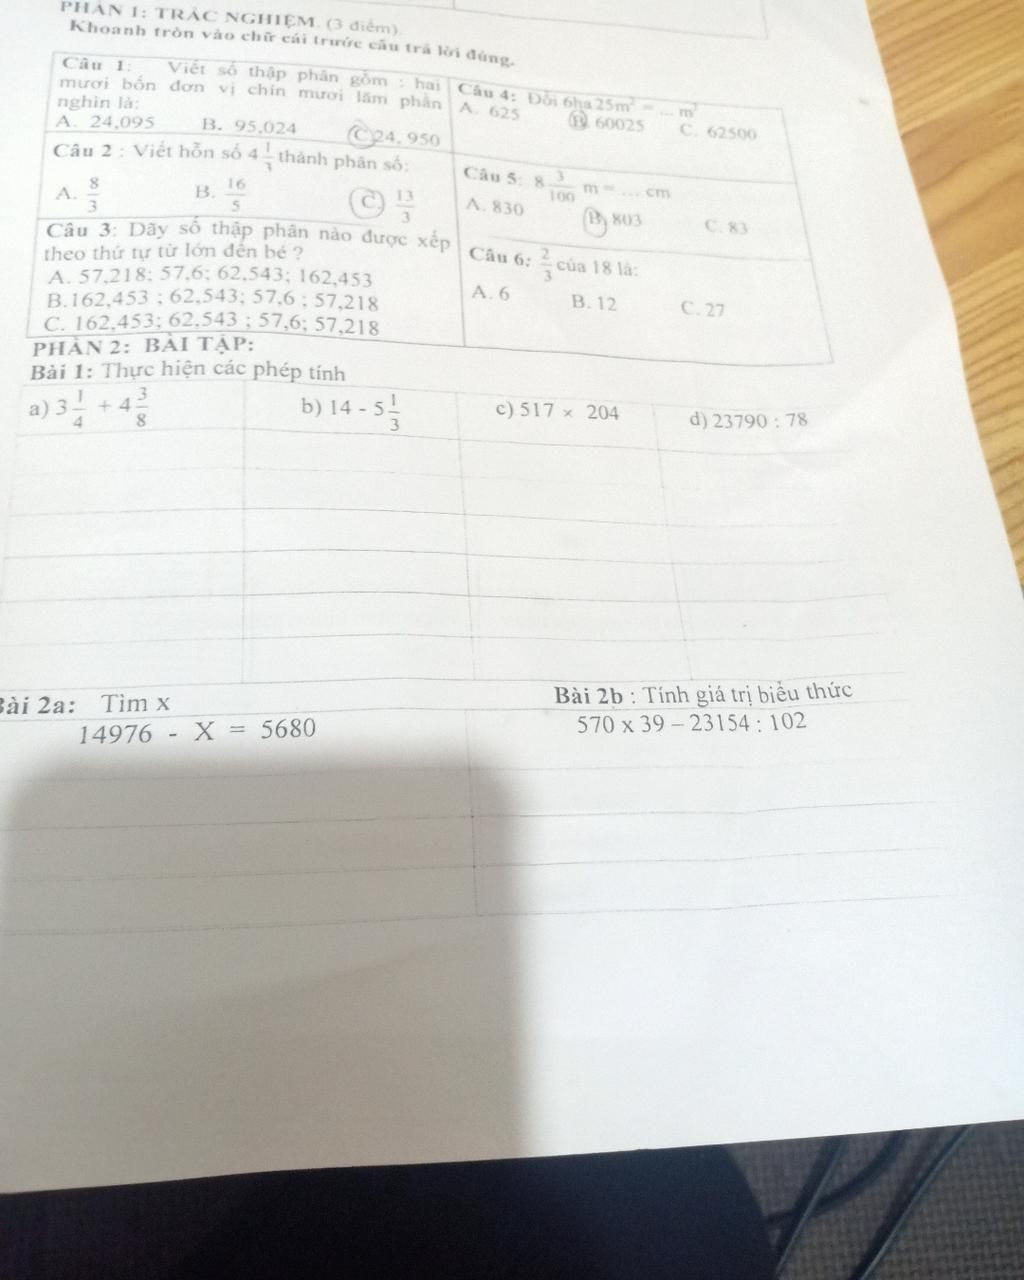 PHẦN 1: TRẮC NGHIỆM. (3 điểm).
Khoanh tròn vào chữ cái trước câu trả lời đúng.
Câu 1: Viết số thập phân gồm : hai
mươi bốn đơn vị chín mươi lăm phần
nghìn là:
A. 24,095 B. 95,024 C. 24, 950
Câu 2 : Viết hỗn số 4 1/3 thành phân số:
A. 8/3 B. 16/5 C. 13/3
Câu 3: Dãy số thập phân nào được xếp
theo thứ tự từ lớn đến bé ?
A. 57,218; 57,6; 62,543; 162,453
B.162,453 ; 62,543; 57,6 ; 57,218
C. 162,453; 62,543 ; 57,6; 57,218
Câu 4: Đổi 6ha 25m² = ... m²
A. 625 B. 60025 C. 62500
Câu 5: 8 3/100 m = ... cm
A. 830 B. 803 C. 83
Câu 6: 2/3 của 18 là:
A. 6 B. 12 C. 27
PHẦN 2: BÀI TẬP:
Bài 1: Thực hiện các phép tính
a) 3 1/4 + 4 3/8 b) 14 - 5 1/3 c) 517 × 204 d) 23790 : 78
Bài 2a: Tìm x
14976 - X = 5680
Bài 2b : Tính giá trị biểu thức
570 x 39 – 23154 : 102